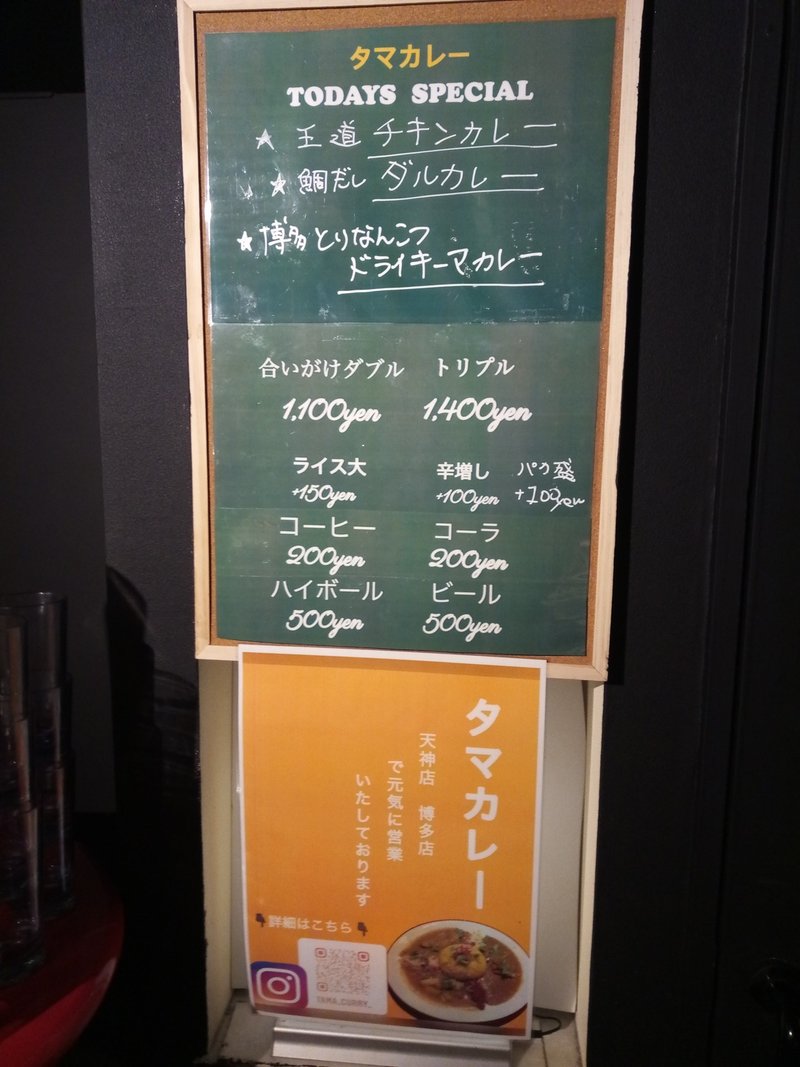 タマカレー
TODAYS SPECIAL
★ 王道 チキンカレー
★ 鯛だし ダルカレー
★ 博多とりなんこつ
ドライキーマカレー
合いがけダブル トリプル
1,100yen 1,400yen
ライス大 辛増し パク盛
+150yen +100yen +100yen
コーヒー コーラ
200yen 200yen
ハイボール ビール
500yen 500yen
タマカレー
天神店 博多店
で元気に営業
いたしております
詳細はこちら
TAMA_CURRY_